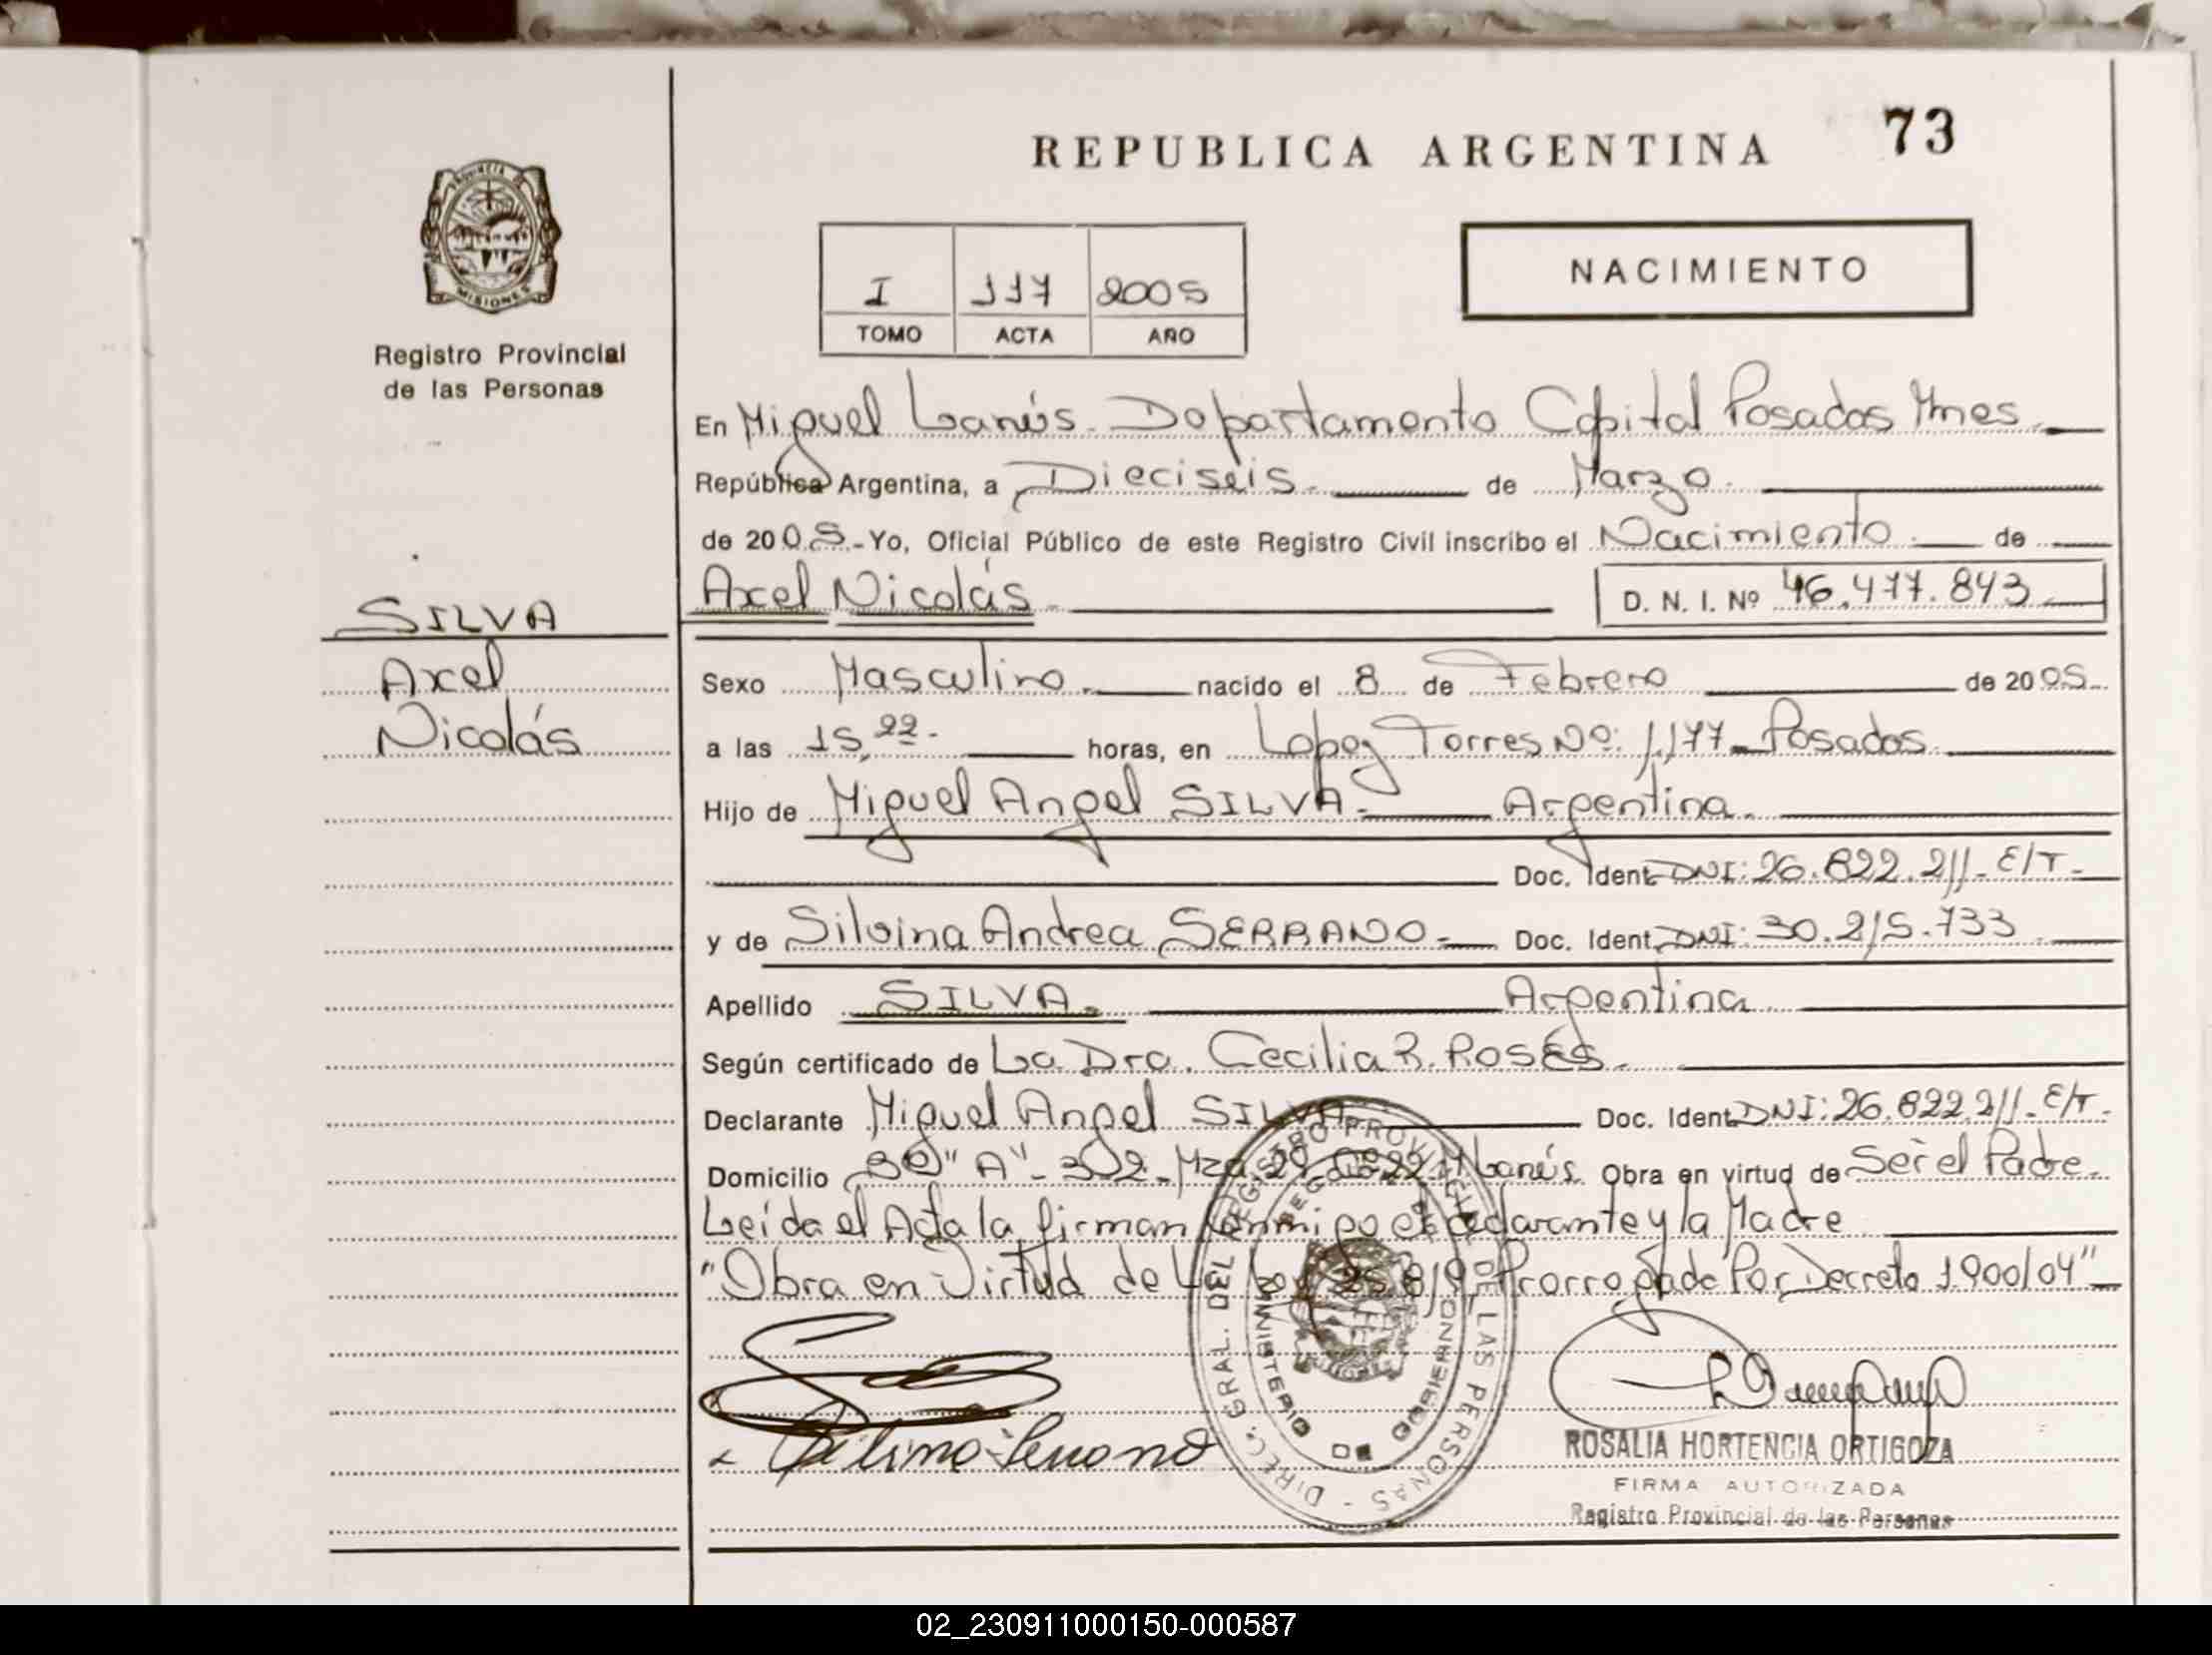 REPUBLICA ARGENTINA 73
PROVINCIA DE
MISIONES
Registro Provincial
de las Personas
I 117 2005
TOMO ACTA AÑO
NACIMIENTO
En Miguel Lanús. Departamento Capital Posadas Mnes.
República Argentina, a Dieciséis. de Marzo.
de 2005.-Yo, Oficial Público de este Registro Civil inscribo el Nacimiento. de
Axel Nicolás. D. N. I. Nº 46.477.843
SILVA
Axel
Nicolás
Sexo Masculino. nacido el 8 de Febrero de 2005.
a las 15,22- horas, en Lopez Torres Nº: 1,177- Posadas.
Hijo de Miguel Angel SILVA.- Argentina.
Doc. Ident. DNI: 26.822.211- E/T-
y de Silvina Andrea SERRANO- Doc. Ident. DNI: 30.215.733
Apellido SILVA. Argentina.
Según certificado de La Dra. Cecilia R. Rosés.
Declarante Miguel Angel SILVA Doc. Ident. DNI: 26.822.211- E/T-
Domicilio "A"- 302- Mza. Lanús. Obra en virtud de Ser el Padre.
Leída el Acta la firman Conmigo el declarante y la Madre
"Obra en Virtud de Prorrogada Por Decreto 1.900/04"
Silvina Serrano
DIREC. GRAL. DEL REGISTRO PROVINCIAL DE LAS PERSONAS -
MINISTERIO DE GOBIERNO
ROSALIA HORTENCIA ORTIGOZA
FIRMA AUTORIZADA
Registro Provincial de las Personas
02_230911000150-000587